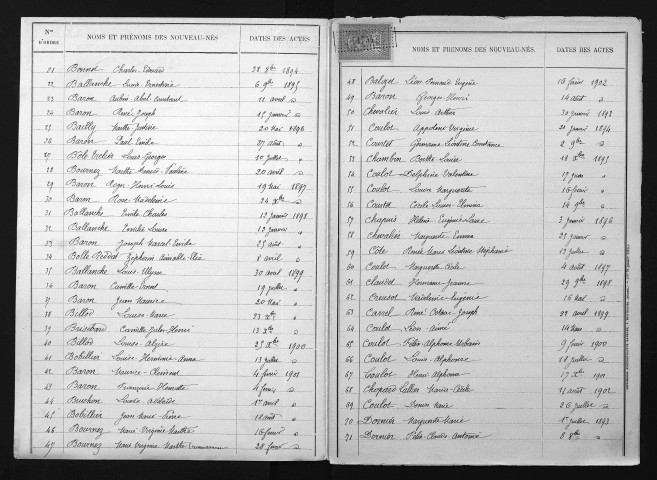 Nos D'ORDRE NOMS ET PRÉNOMS DES NOUVEAU-NÉS DATES DES ACTES
21 Bonnot Charles Edouard 28 Xbre 1894
22 Ballanche Louis Ernestine 6 9bre 1895
23 Baron Aubin Abel Constant 11 avril
24 Baron René Joseph 15 janvier
25 Bailly Marthe Justine 20 Mai 1896
26 Baron Paul Emile 27 août
27 Bôle Louis Georges 10 juillet
28 Bournez Marthe 20 avril
29 Baron Roger Henri Louis 19 Mai 1897
30 Baron Rose Madeleine 24 Xbre
31 Ballanche Emile Charles 12 janvier 1898
32 Ballanche Emilie Louise 12 janvier
33 Baron Joseph Marcel Emile 25 août
34 Bolle Reddat Zéphirin 8 avril
35 Ballanche Louis Ulysse 30 avril 1899
36 Baron Camille 19 juillet
37 Baron Jean Maurice 20 Mai
38 Billod Louise Marie 23 Xbre
39 Brisebard Camille Jules Henri 13 Xbre
40 Billod Louise Alzire 25 Xbre 1900
41 Bobillier Louise Herminie Anna 13 juillet
42 Baron Maurice 4 février 1901
43 Baron Françoise 4 février
44 Louis 1er avril
45 Bobillier Jean Marie Pierre 18 août
46 Bournez Marie Virginie Marthe 16 février
47 Bournez Marie Virginie Marthe 28 février
NOMS ET PRÉNOMS DES NOUVEAU-NÉS. DATES DES ACTES.
48 Léon Eugène 16 février 1902
49 Baron Georges Henri 14 août
50 Chevalier Louis Arthur 30 janvier 1893
51 Coulot Appoline Virginie 21 janvier 1894
52 Germaine Léontine Constance 2 9bre
53 Chambon Berthe Louise 18 Xbre 1895
54 Coulot Delphine Valentine 17 juin
55 Coulot Louise Marguerite 16 février
56 Cécile Louise 14 9bre
57 Chapuis Hélène Eugénie Laure 3 janvier 1896
58 Chevalier Marguerite Emma 25 janvier
59 Côte Marie Léontine Stéphanie 13 juillet
60 Coulot Marguerite Cécile 4 août 1897
61 Claudet Hermance Jeanne 29 9bre 1898
62 Madeleine Eugénie 16 Mai
63 Carrel René Joseph 28 avril 1899
64 Coulot Léon Aimé 14 Mars
65 Coulot Félix Alphonse 9 février 1900
66 Coulot Louis Alphonse 18 juillet
67 Coulot Henri Alphonse 17 Xbre 1901
68 Chopard Lallier Maria Cécile 31 août 1902
69 Coulot Marie 26 juillet
70 Dornier Marguerite Marie 1er juillet 1893
71 Dornier Félix 8 8bre